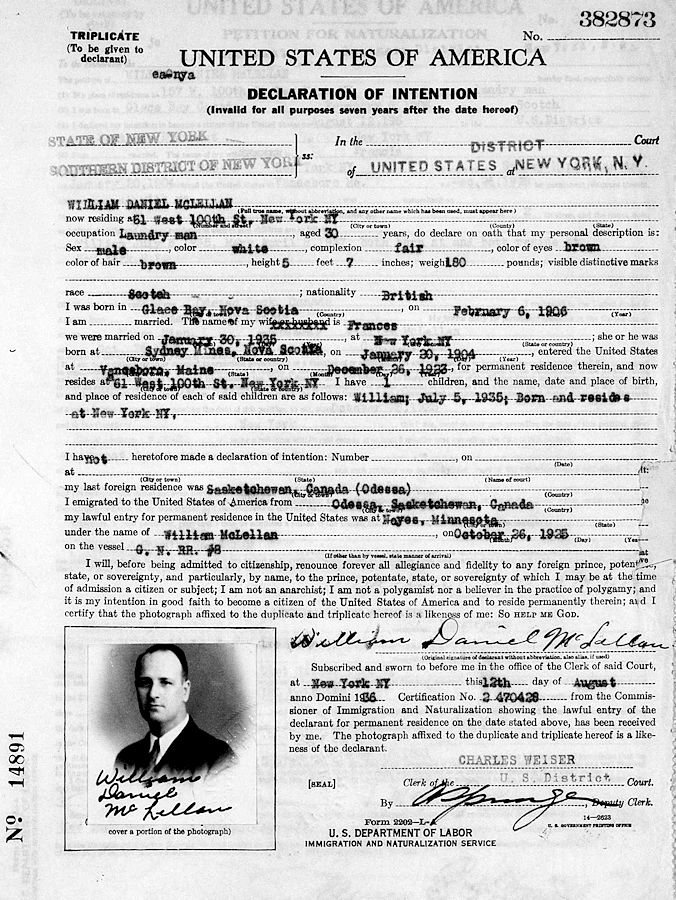 TRIPLICATE
(To be given to
declarant)
No. 382873
UNITED STATES OF AMERICA
DECLARATION OF INTENTION
(Invalid for all purposes seven years after the date hereof)
STATE OF NEW YORK
SOUTHERN DISTRICT OF NEW YORK
ss:
In the DISTRICT Court
of UNITED STATES at NEW YORK, N. Y.
WILLIAM DANIEL MCLELLAN
(Full true name, without abbreviation, and any other name which has been used, must appear here)
now residing at 61 West 100th St. New York NY
(Number and street) (City or town) (County) (State)
occupation Laundry man, aged 30 years, do declare on oath that my personal description is:
Sex male, color white, complexion fair, color of eyes brown
color of hair brown, height 5 feet 7 inches; weigh 180 pounds; visible distinctive marks
race Scotch; nationality British
I was born in Glace Bay, Nova Scotia, on February 6, 1906
(Country) (Year)
I am married. The name of my wife or husband is Frances
we were married on January 30, 1935, at New York NY; she or he was
(State or country)
born at Sydney Mines, Nova Scotia, on January 20, 1904, entered the United States
(City or town) (State or country) (Year)
at Vanceboro, Maine, on December 26, 1923, for permanent residence therein, and now
(City or town) (State) (Month) (Day) (Year)
resides at 61 West 100th St. New York NY I have 1 children, and the name, date and place of birth,
(City or town) (State or country)
and place of residence of each of said children are as follows: William; July 5, 1935; Born and resides
at New York NY.
I have not heretofore made a declaration of intention: Number, on
(Date)
at
(City or town) (State) (Name of court)
my last foreign residence was Sasketchewan, Canada (Odessa)
(City or town) (Country)
I emigrated to the United States of America from Odessa, Sasketchewan, Canada
(City or town) (Country)
my lawful entry for permanent residence in the United States was at Noyes, Minnesota
(City or town) (State)
under the name of William McLellan, on October 26, 1925
(Month) (Day)
on the vessel G. N. RR. #8
(If other than by vessel, state manner of arrival)
I will, before being admitted to citizenship, renounce forever all allegiance and fidelity to any foreign prince,
state, or sovereignty, and particularly, by name, to the prince, potentate, state, or sovereignty of which I may be at the time
of admission a citizen or subject; I am not an anarchist; I am not a polygamist nor a believer in the practice of polygamy; and
it is my intention in good faith to become a citizen of the United States of America and to reside permanently therein; and I
certify that the photograph affixed to the duplicate and triplicate hereof is a likeness of me: SO HELP ME GOD.
William Daniel McLellan
(Original signature of declarant without abbreviation, also alias, if used)
Subscribed and sworn to before me in the office of the Clerk of said Court,
at New York NY this 12th day of August
anno Domini 1936 Certification No. 2 470428 from the Commis-
sioner of Immigration and Naturalization showing the lawful entry of the
declarant for permanent residence on the date stated above, has been received
by me. The photograph affixed to the duplicate and triplicate hereof is a like-
ness of the declarant.
CHARLES WEISER
[SEAL] Clerk of the U. S. District Court.
By , Deputy Clerk.
Form 2202-L-A
14—2623
U. S. GOVERNMENT PRINTING OFFICE
U. S. DEPARTMENT OF LABOR
IMMIGRATION AND NATURALIZATION SERVICE
William
Daniel
McLellan
cover a portion of the photograph)
No 14891